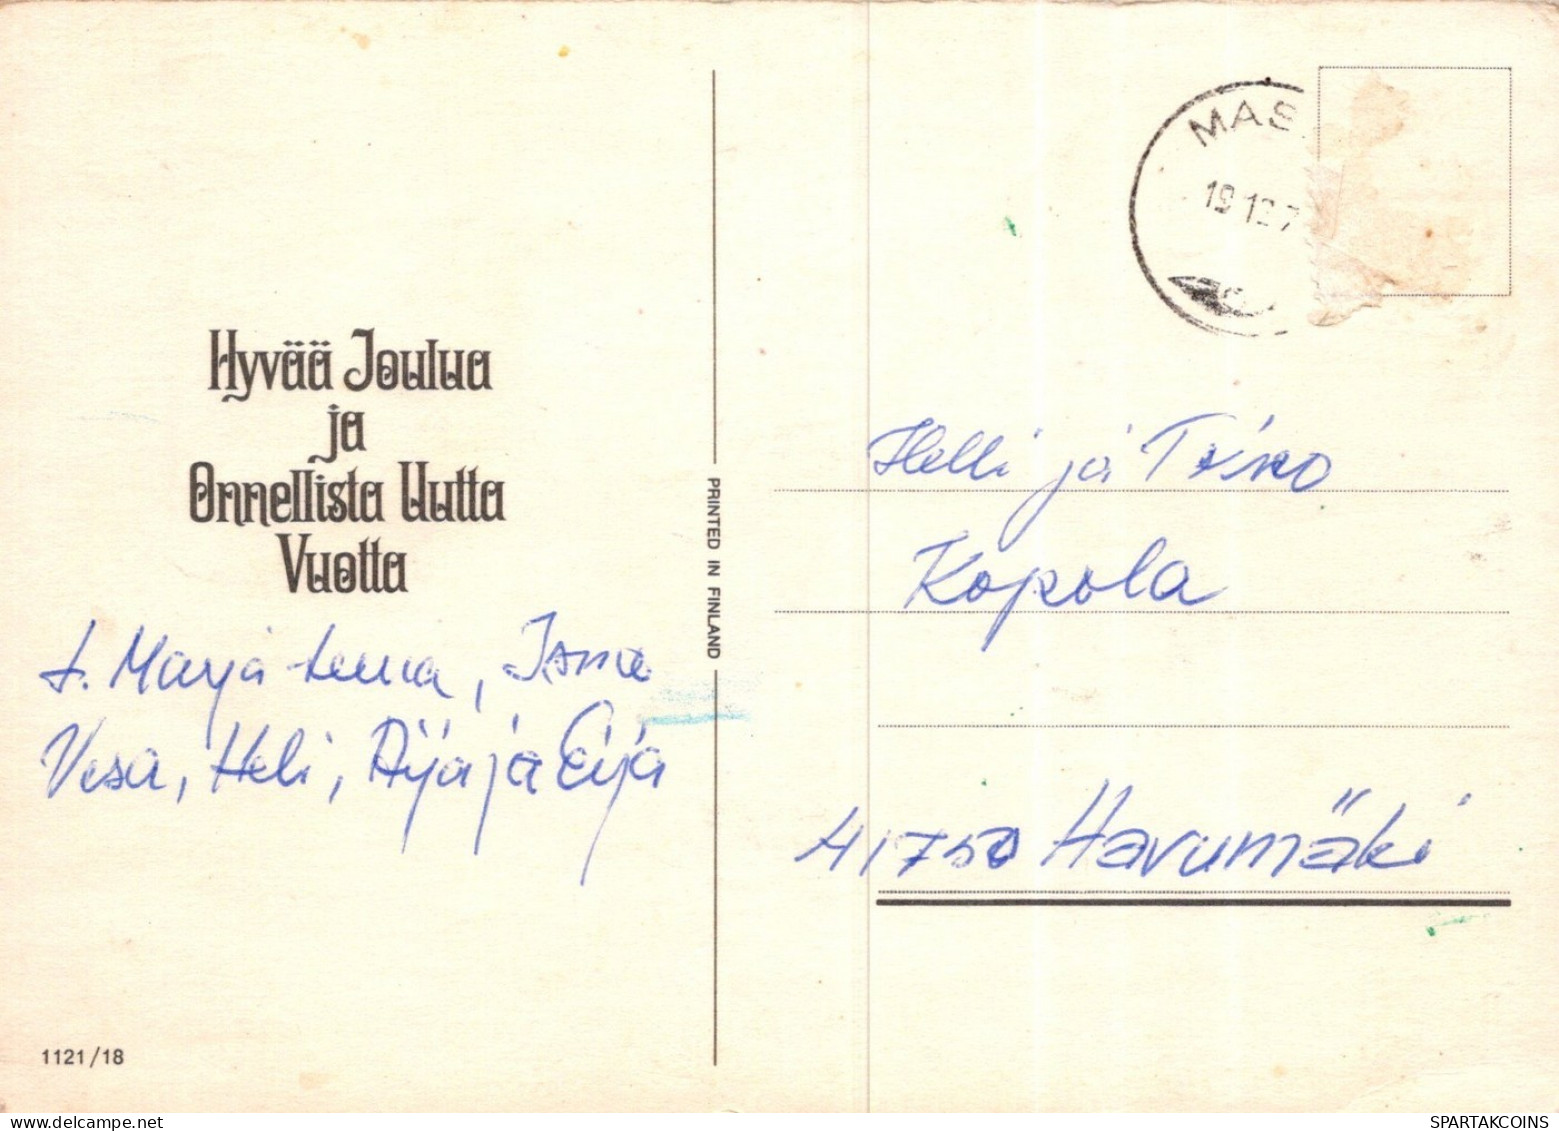 Hyvää Joulua
ja
Onnellista Uutta
Vuotta
t. Marjaleena, Jsmo
Vesa, Heli, Aija ja Eija
1121/18
PRINTED IN FINLAND
MAS
19.12.7
Helli ja Toivo
Kopola
41750 Havumäki
SPARTAKCOINS